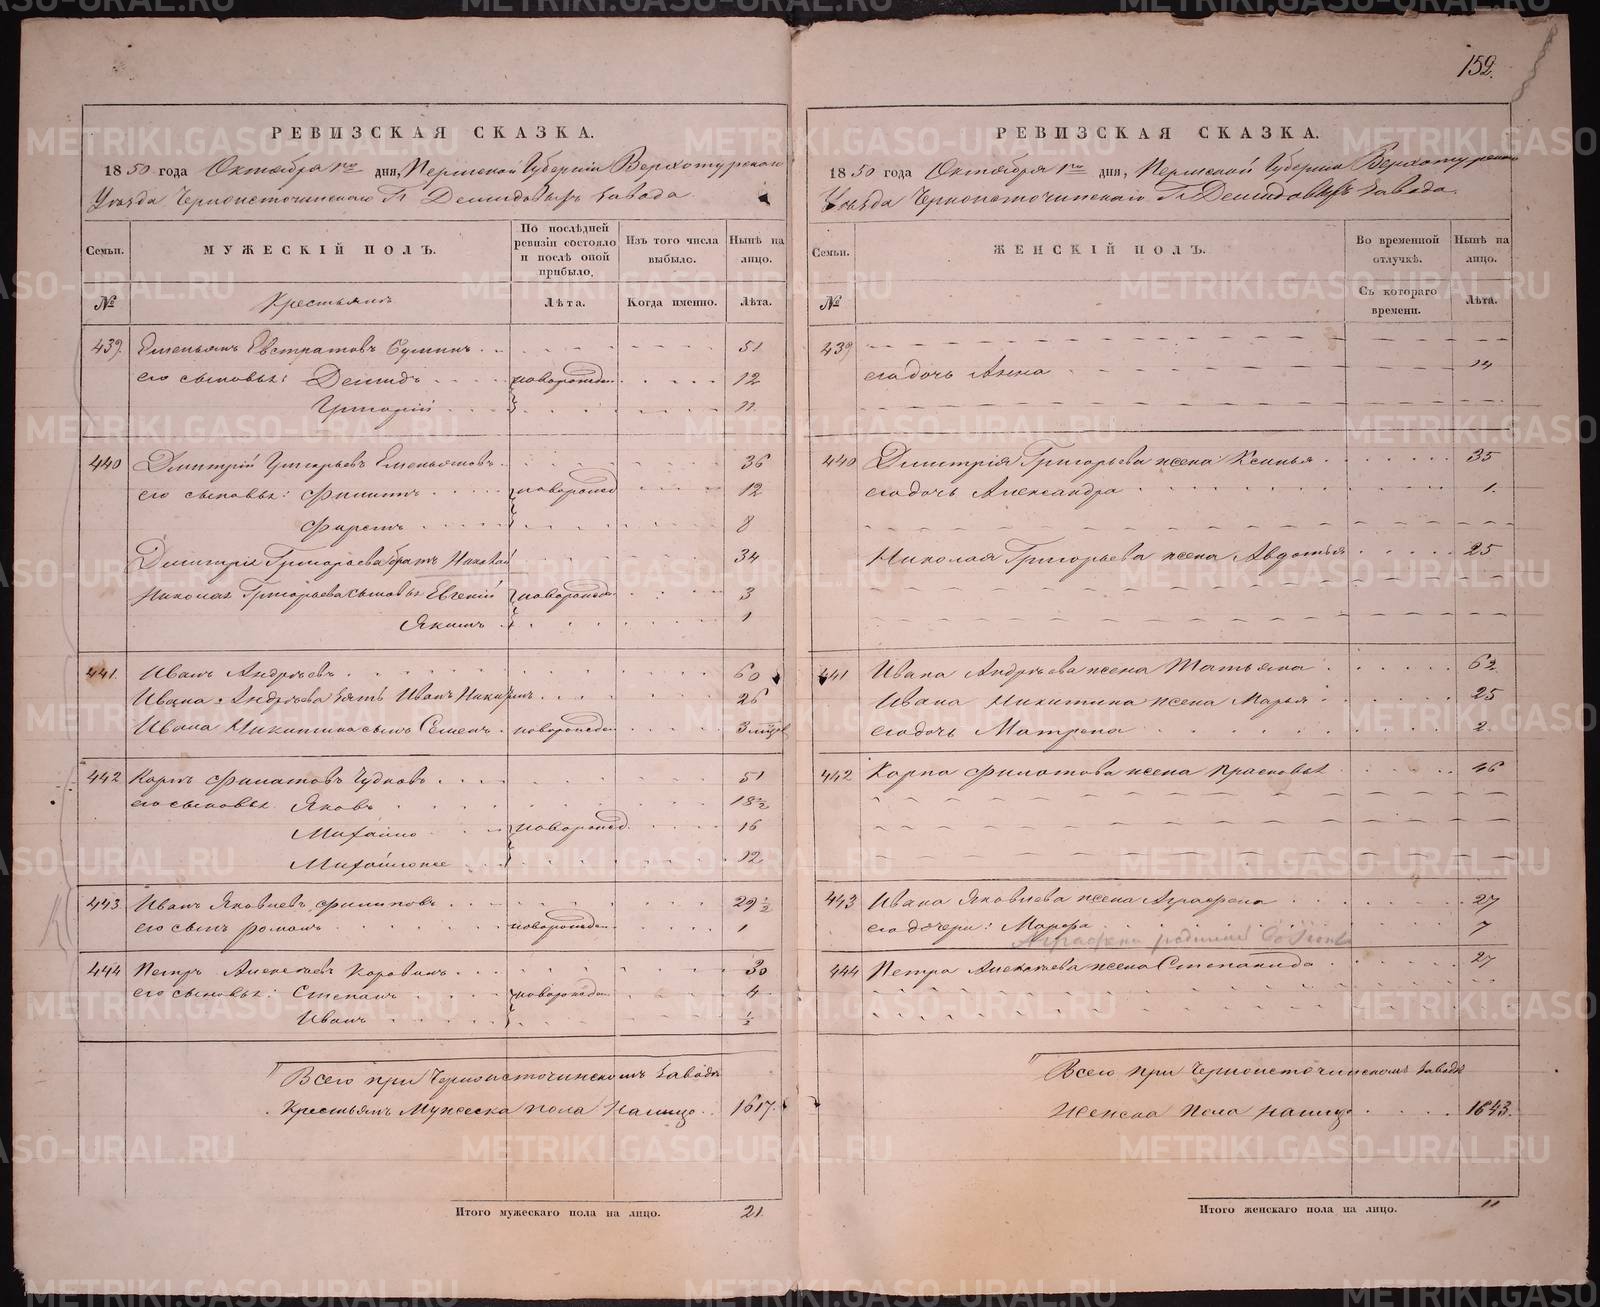 152.
РЕВИЗСКАЯ СКАЗКА.
1850 года Октября 1го дня, Пермской Губерніи Верхотурскаго
Уѣзда Черноисточинскаго Гг Демидовыхъ завода.
Семьи.
МУЖЕСКІЙ ПОЛЪ.
По послѣдней ревизіи состояло и послѣ оной прибыло.
Изъ того числа выбыло.
Нынѣ на лицо.
№
Крестьянъ
Лѣта.
Когда именно.
Лѣта.
439. Емельянъ Евстратовъ 51
его сыновья: Демидъ новорожден. 12
Григорій 11
440 Дмитрій Григорьевъ Емельяновъ 36
его сыновья: Филипъ новорожд 12
Фирсъ 8
Дмитрія Григорьева братъ Николай 34
Николая Григорьева сыновья Евгеній новорожде. 3
Якимъ 1
441. Иванъ Андрѣевъ 60
Ивана Андрѣева зять Иванъ Никитинъ 26
Ивана Никитина сынъ Семенъ новорожден 3 мѣсяц
442 Карпъ Филатовъ Чудковъ 51
его сыновья Яковъ 18½
Михайло новорожд. 16
Михайло же 12
443 Иванъ Яковлевъ Филиповъ 29½
его сынъ Романъ новорожден. 1
444 Петръ Алексѣевъ Коровинъ 30
его сыновья: Степанъ новорожден 4
Иванъ ½
Всего при Черноисточинскомъ заводѣ
Крестьянъ Мужеска пола налицо 1617.
Итого мужескаго пола на лицо. 21
РЕВИЗСКАЯ СКАЗКА.
1850 года Октября 1го дня, Пермской Губерніи Верхотурскаго
Уѣзда Черноисточинскаго Гг Демидовыхъ завода.
Семьи.
ЖЕНСКІЙ ПОЛЪ.
Во временной отлучкѣ.
Нынѣ на лицо.
№
Съ котораго времени.
Лѣта.
439
его дочь Анна 14
440 Дмитрія Григорьева жена Ксенья 35
его дочь Александра 1.
Николая Григорьева жена Авдотья 25
441 Ивана Андрѣева жена Татьяна 62
Ивана Никитина жена Марья 25
его дочь Матрена 2
442 Карпа Филатова жена Прасковья 46
443 Ивана Яковлева жена Аграфена 27
его дочери: Марфа 7
444 Петра Алексѣева жена Степанида 27
Всего при Черноисточинскомъ заводѣ
Женска пола налицо 1643.
Итого женскаго пола на лицо. 11
METRIKI.GASO-URAL.RU